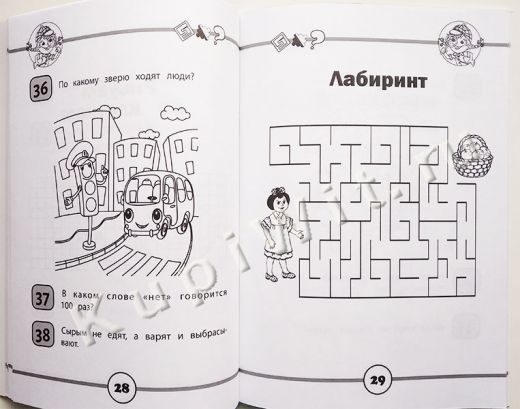 36 По какому зверю ходят люди?
37 В каком слове «нет» говорится
100 раз?
38 Сырым не едят, а варят и выбрасы-
вают.
28
Лабиринт
29
KupiVit.ru